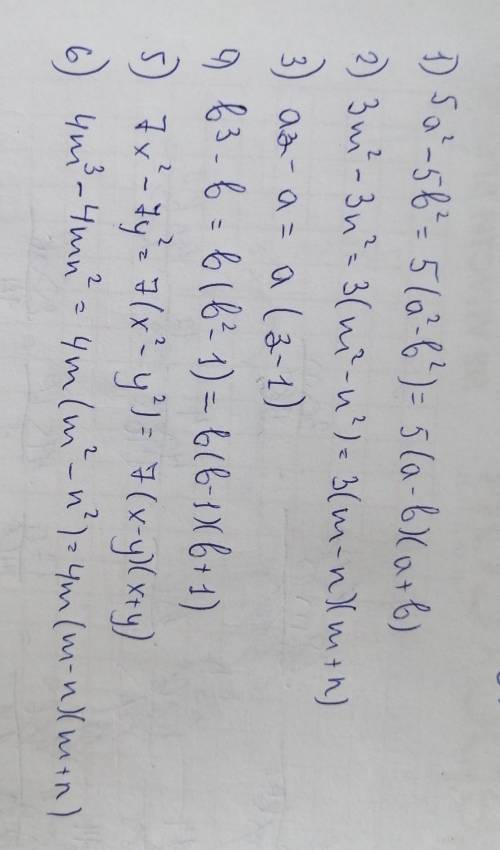 1) 5a² - 5b² = 5(a² - b²) = 5(a - b)(a + b)
2) 3m² - 3n² = 3(m² - n²) = 3(m - n)(m + n)
3) az - a = a(z - 1)
4) b³ - b = b(b² - 1) = b(b - 1)(b + 1)
5) 7x² - 7y² = 7(x² - y²) = 7(x - y)(x + y)
6) 4m³ - 4mn² = 4m(m² - n²) = 4m(m - n)(m + n)